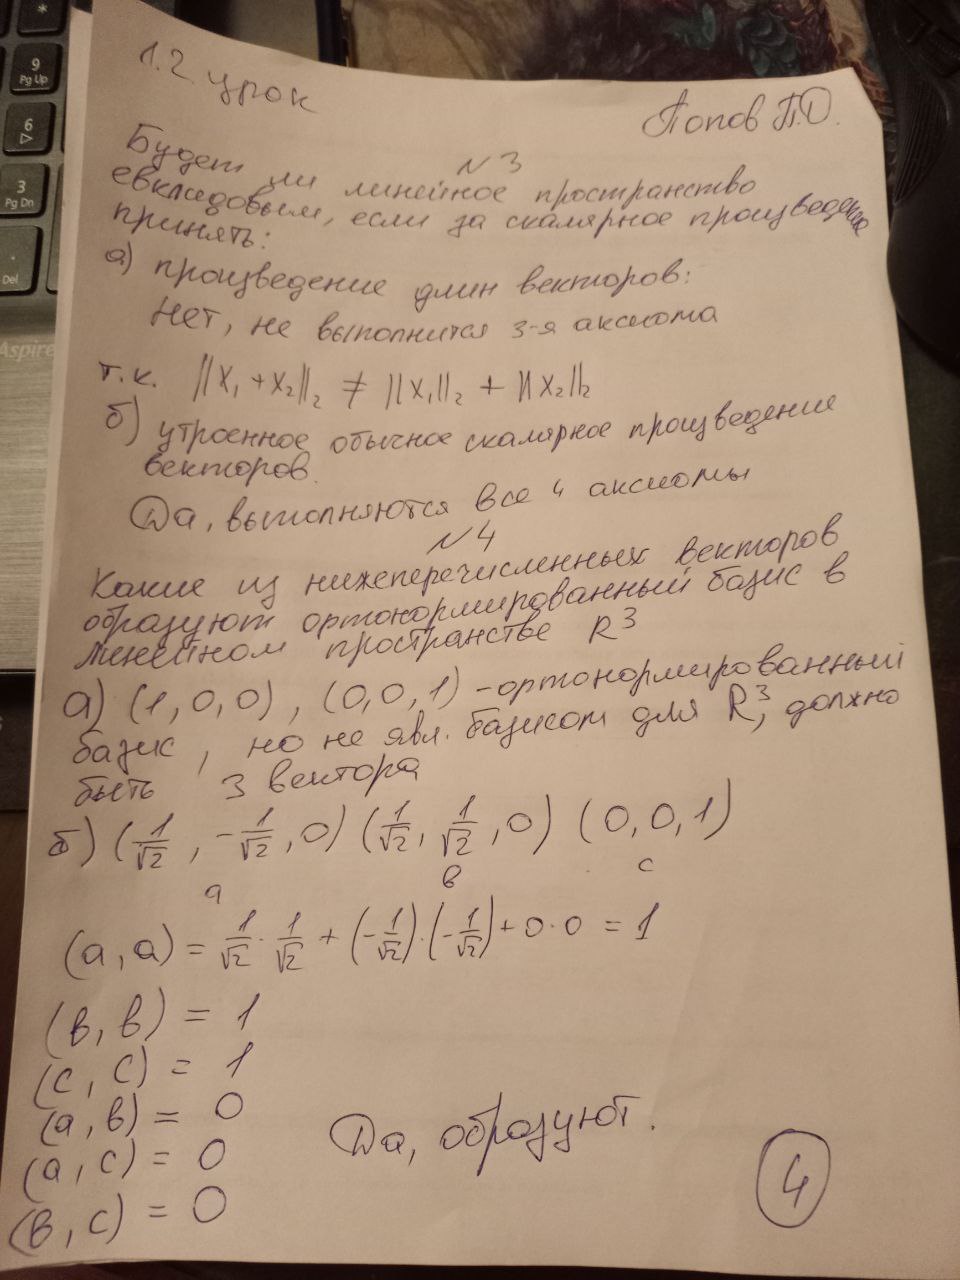 *
9
Pg Up
6
3
Pg Dn
.
Del
Aspire
1.2. урок
Попов П.Д.
N3
Будет ли линейное пространство
евклидовым, если за скалярное произведение
принять:
а) произведение длин векторов:
Нет, не выполнится 3-я аксиома
т.к. ||x₁ + x₂||₂ ≠ ||x₁||₂ + ||x₂||₂
б) утроенное обычное скалярное произведение
векторов.
Да, выполняются все 4 аксиомы
N4
Какие из нижеперечисленных векторов
образуют ортонормированный базис в
линейном пространстве R³
а) (1, 0, 0), (0, 0, 1) - ортонормированный
базис, но не явл. базисом для R³, должно
быть 3 вектора
б) (1/√2, -1/√2, 0) (1/√2, 1/√2, 0) (0, 0, 1)
а в с
(а, а) = 1/√2 · 1/√2 + (-1/√2) · (-1/√2) + 0 · 0 = 1
(в, в) = 1
(с, с) = 1
(а, в) = 0
(а, с) = 0
(в, с) = 0
Да, образуют.
4